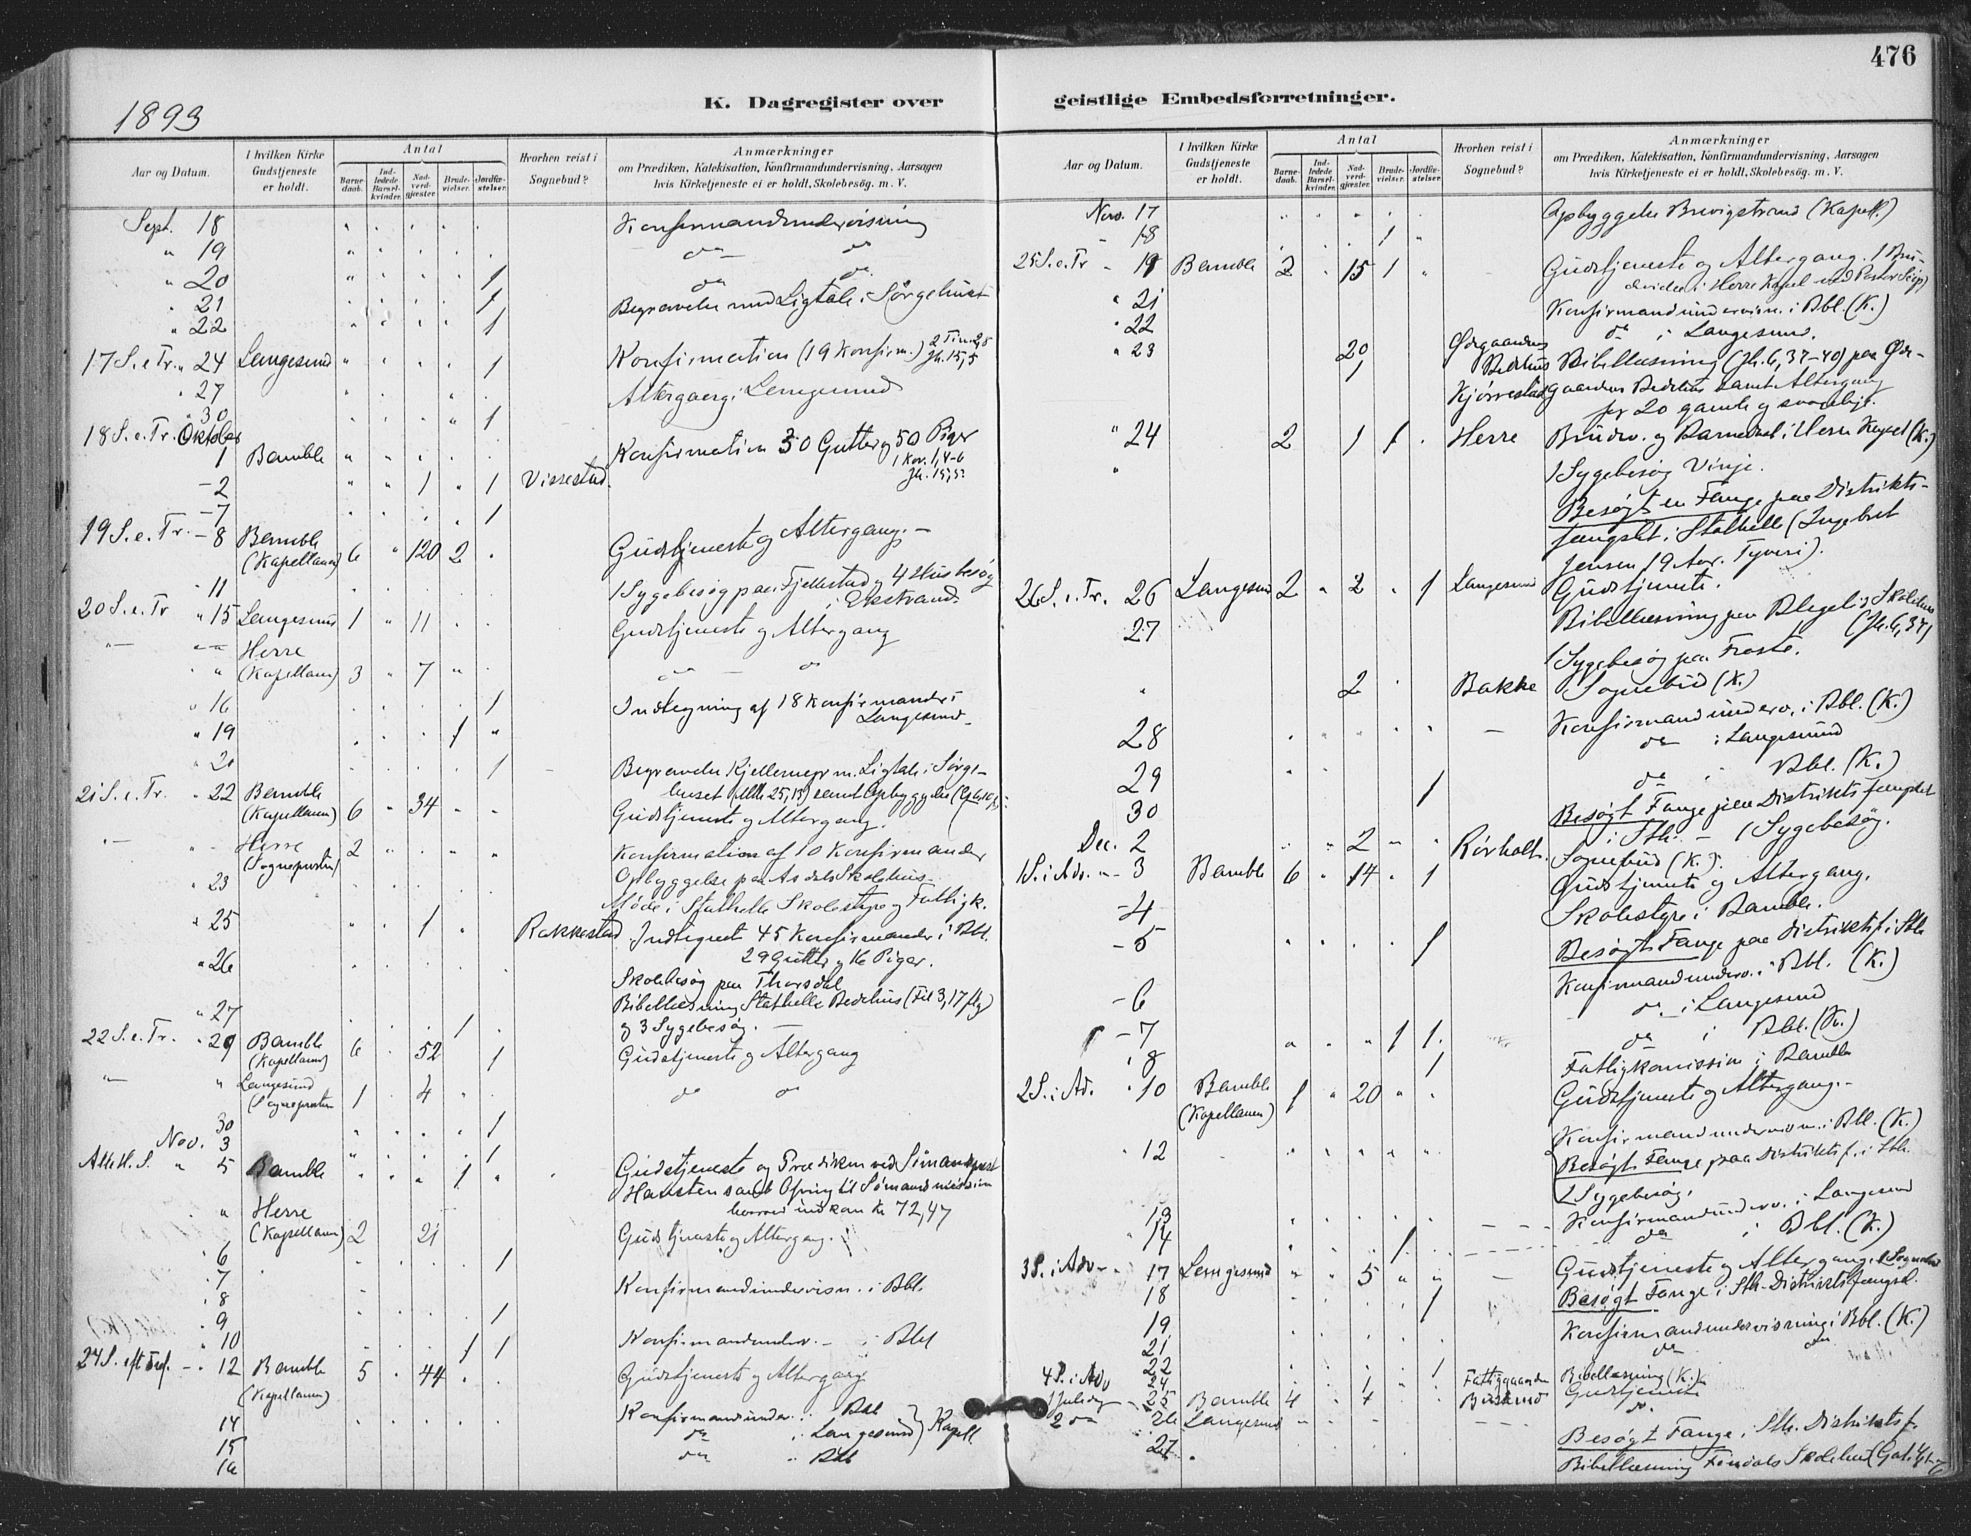 476
1893
K. Dagregister over geistlige Embedsforretninger.
Aar og Datum.
I hvilken Kirke Gudstjeneste er holdt.
Antal
Barnedaab.
Indledede Barselkvinder.
Nadverdgjester.
Brudevielser.
Jordfæstelser.
Hvorhen reist i Sognebud?
Anmærkninger
om Prædiken, Katekisation, Konfirmandundervisning, Aarsagen
hvis Kirketjeneste ei er holdt, Skolebesøg. m. V.
Sept. 18 Konfirmandundervisning
" 19 do do
" 20 1 do do
" 21 1 Begravelse med Ligtale i Sørgehuset
" 22 1
17 S. e Tr. " 24 Langesund 1 Konfirmation (19 Konfirm.) 2 Tim 2,8 Jh. 15,5
" 27 Altergang i Langesund
" 30 1
18 S. e. Tr. Oktober
1 Bamble Konfirmation 30 Gutter og 50 Piger
1 Kor. 1,4-6
- 2 1 " 1 Vissestad.
- 7 1
19 S. e. Tr. - 8 Bamble (Kapellanen) 6 " 120 2 . Gudstjeneste og Altergang. -
" 11 1 Sygebesøg paa Fjellestad og 4 Husbesøg
i Ekstrand.
20 S. e. Tr " 15 Langesund 1 " 11 Gudstjeneste og Altergang
" Herre (Kapellanen) 3 " 7 " do do
" 16 1 Indtegning af 18 Konfirmander i
Langesund.
" 19 1 "
" 21 1 Begravelse Kjellernepr m. Ligtale i Sørge-
huset (Mt. 25,13) samt Opbyggelse
21 S. e. Tr. " 22 Bamble (Kapellanen) 6 " 34 - - Gudstjeneste og Altergang.
Herre (Sognepresten) 2 " " " Konfirmation af 10 Konfirmander
" 23 Opbyggelse paa Asdals Skolehus.
Møde i Stathelle Skolestyre og Fattigk.
" 25 1 " Rakkestad Indtegnet 45 Konfirmander i Bbl.
29 Gutter og 16 Piger.
" 26 Skolebesøg paa Thorsdal
Bibellæsning Stathelle Bedehus (Fil 3,17 flg)
" 27 1 og 3 Sygebesøg. -
22 S. e. Tr. " 29 Bamble (Kapellanen) 6 . 52 1 Gudstjeneste og Altergang
" " Langesund (Sognepresten 1 . 4 " do do
30 1
Nov. 3 1
Alle H. S. " 5 Bamble " " " 1 " Gudstjeneste og Prædiken ved Sömandsprest
Hansten samt Ofring til Sømandsmission
hvorved indkom Kr 72,47
" Herre (Kapellanen) 2 21 Gudstjeneste og Altergang.
" 6 1
" 7 Konfirmandundervisn. i Bbl.
" 8
" 9 1
" 10 1 1 Konfirmandunderv. - i Bbl
24 S. eft Tref. - " 12 Bamble (Kapellanen) 5 . 44 . . Gudstjeneste og Altergang
14 Konfirmandunder. i Bbl
15 do i Langesund } Kapell.
16 do " Bbl
Aar og Datum.
I hvilken Kirke Gudstjeneste er holdt.
Antal
Barnedaab.
Indledede Barselkvinder.
Nadverdgjester.
Brudevielser.
Jordfæstelser.
Hvorhen reist i Sognebud?
Anmærkninger
om Prædiken, Katekisation, Konfirmandundervisning, Aarsagen
hvis Kirketjeneste ei er holdt, Skolebesøg. m. V.
Nov. 17 Opbyggelse Brevigstrand (Kapell.)
" 18 1 "
25 S. e. Tr " 19 Bamble 2 " 15 1 " Gudstjeneste og Altergang. 1 Bru-
devielse i Herre Kapel
" 21 Konfirmandundervisn. i Bbl. (K.)
" 22 do i Langesund.
" 23 20 Ørgaardens Bedehus Bibellæsning (Jh. 6, 37-40) paa Ør-
1 Kjørrestad gaardens Bedehus samt Altergang
for 20 gamle og svagelige.
" 24 2 1 1 . Herre Brudev. og Barnedaab i Herre Kapel (K.)
" 1 Sygebesøg Vinje.
Besøgt en Fange paa Distrikts-
fængslet i Stathelle (Ingebret
Jensen 19 Aar. Tyveri).
26 S. e. Tr. 26 Langesund 2 " 2 " 1 Langesund Gudstjeneste.
27 Bibellæsning paa Skolehus
(Jh. 6, 37)
1 Sygebesøg paa Froste.
" 2 Bakke 1 Sognebud (K.)
28 Konfirmandunderv. i Bbl. (K.)
29 do i Langesund
30 1 do i Bbl. (K.)
Besøgt Fange paa Distriktsfængslet
i Sth. - 1 Sygebesøg.
Dec. 2 2 " " Rørholt. Sognebud (K.).
1 S. i Adv. " 3 Bamble 6 " 14 " 1 Gudstjeneste og Altergang.
- 4 Skolestyre i Bamble.
- 5 1 Besøgt Fange paa Distriktsf. i Sth
Konfirmandunderv. i Bbl. (K.)
- 6 do i Langesund
- 7 1 1. do i Bbl. (K.)
" 8 1 Fattigkomission i Bamble
2 S. i Ad. " 10 Bamble (Kapellanen) 1 " 20 " " Gudstjeneste og Altergang. -
" 12 Konfirmandunderv. i Bbl. (K.)
Besøgt Fange paa Distriktsf. i Sth.
2 Sygebesøg.
13 Konfirmandunderv. i Langesund
" 14 1 do i Bbl. (K.)
3 S. i Adv - " 17 Langesund " " 5 " " Gudstjeneste og Altergang. 1 Sognebud
18 1 Besøgt Fange i Sth. Distriktsfængsel.
19 Konfirmandundervisning i Bbl. (K.)
21 do do
22 1 Bibellæsning (K.)
4 S. i Adv 24 1 Fattiggaarden
1 Juledag " 25 Bamble 4 4 Gudstjeneste
2 do 26 Langesund do.
27 Besøgt Fange i Sth. Distriktsf.
Bibellæsning Skolehus